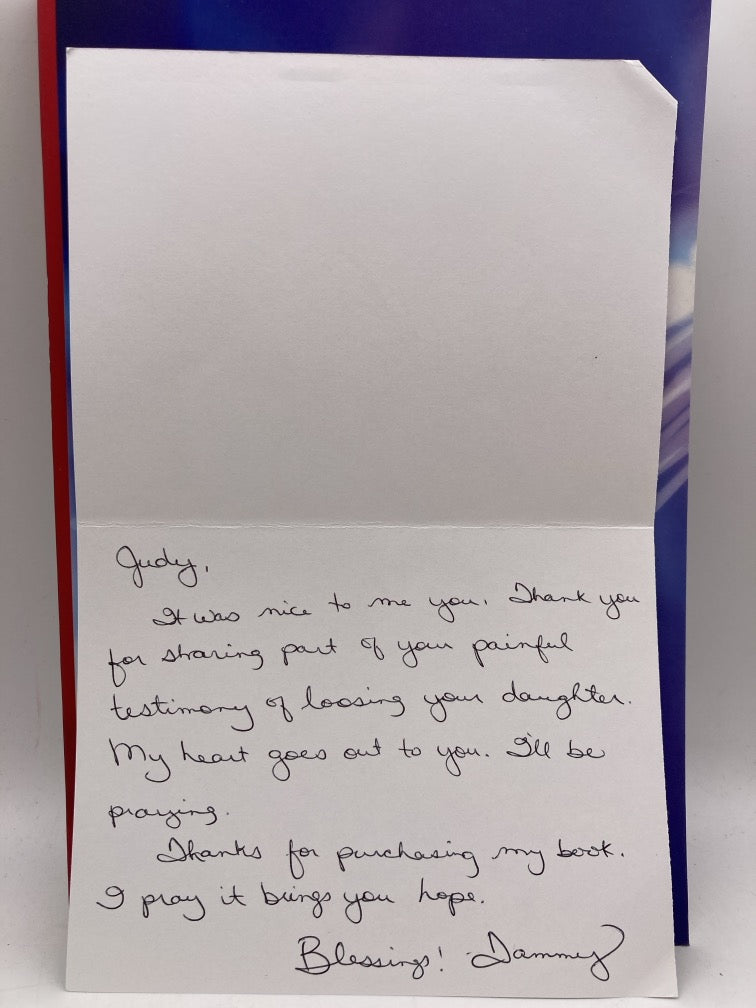 Judy,
It was nice to me you. Thank you
for sharing part of your painful
testimony of loosing your daughter.
My heart goes out to you. I'll be
praying.
Thanks for purchasing my book.
I pray it brings you hope.
Blessings!